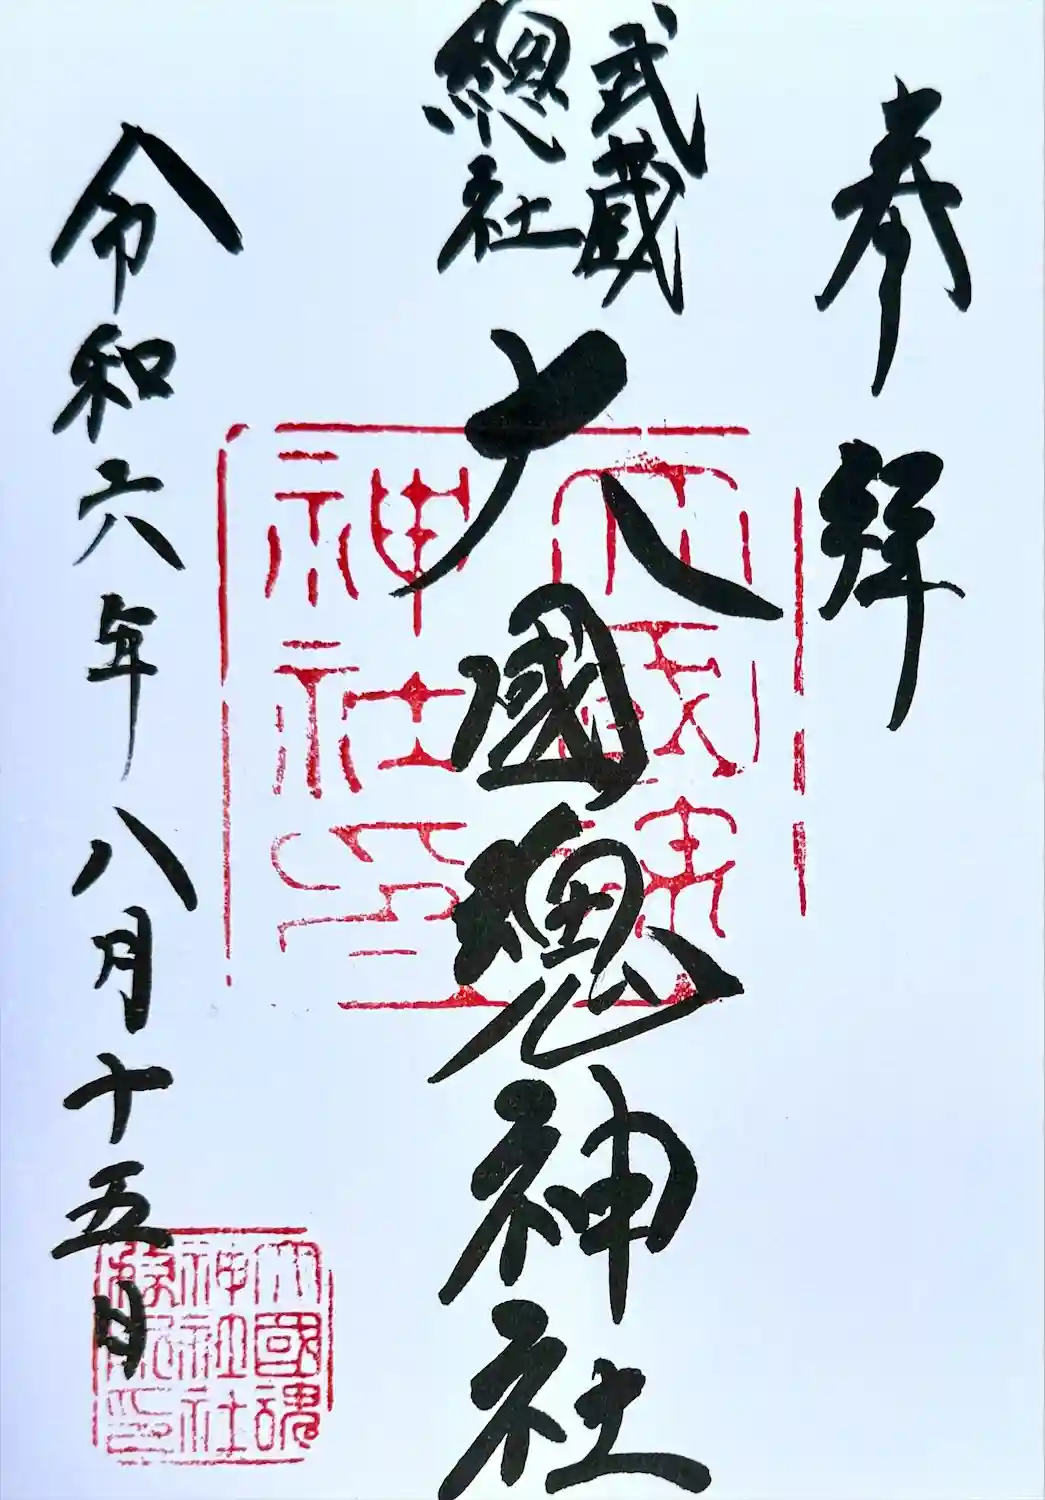 奉拜
武蔵
總社
大國魂神社
令和六年八月十五日
大國魂
神社印
大國魂
神社社